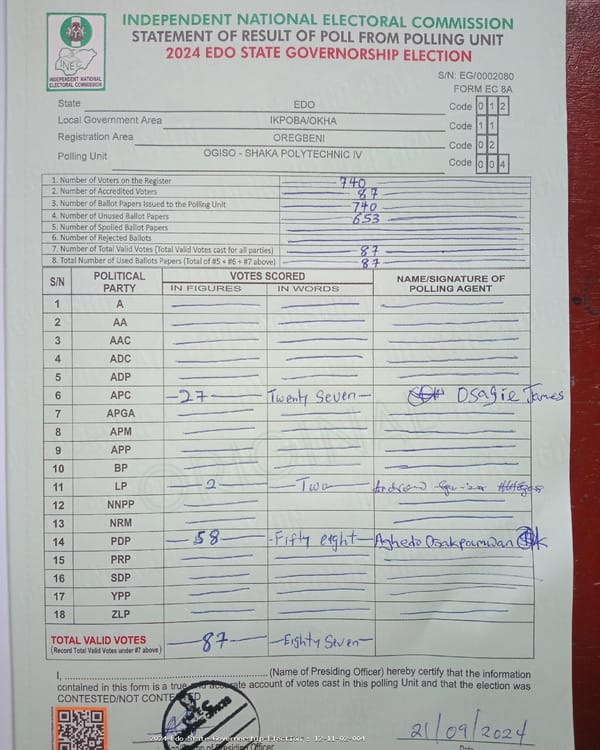 INDEPENDENT NATIONAL ELECTORAL COMMISSION
STATEMENT OF RESULT OF POLL FROM POLLING UNIT
2024 EDO STATE GOVERNORSHIP ELECTION
INEC
INDEPENDENT NATIONAL
ELECTORAL COMMISSION
S/N: EG/0002080
FORM EC 8A
State EDO Code 0 1 2
Local Government Area IKPOBA/OKHA Code 1 1
Registration Area OREGBENI Code 0 2
Polling Unit OGISO - SHAKA POLYTECHNIC IV Code 0 0 4
1. Number of Voters on the Register 740
2. Number of Accredited Voters 87
3. Number of Ballot Papers Issued to the Polling Unit 740
4. Number of Unused Ballot Papers 653
5. Number of Spoiled Ballot Papers
6. Number of Rejected Ballots
7. Number of Total Valid Votes (Total Valid Votes cast for all parties) 87
8. Total Number of Used Ballots Papers (Total of #5 + #6 + #7 above) 87
S/N POLITICAL PARTY VOTES SCORED NAME/SIGNATURE OF POLLING AGENT
IN FIGURES IN WORDS
1 A
2 AA
3 AAC
4 ADC
5 ADP
6 APC 27 Twenty Seven Osagie James
7 APGA
8 APM
9 APP
10 BP
11 LP 2 Two
12 NNPP
13 NRM
14 PDP 58 Fifty eight Aghedo Osakpamwan
15 PRP
16 SDP
17 YPP
18 ZLP
TOTAL VALID VOTES 87 Eighty Seven
(Record Total Valid Votes under #7 above)
ORIGINAL
I, (Name of Presiding Officer) hereby certify that the information
contained in this form is a true and accurate account of votes cast in this polling Unit and that the election was
CONTESTED/NOT CONTESTED
21/09/2024
2024 Edo State Governorship Election - 12-11-02-004
of Presiding Officer
Date